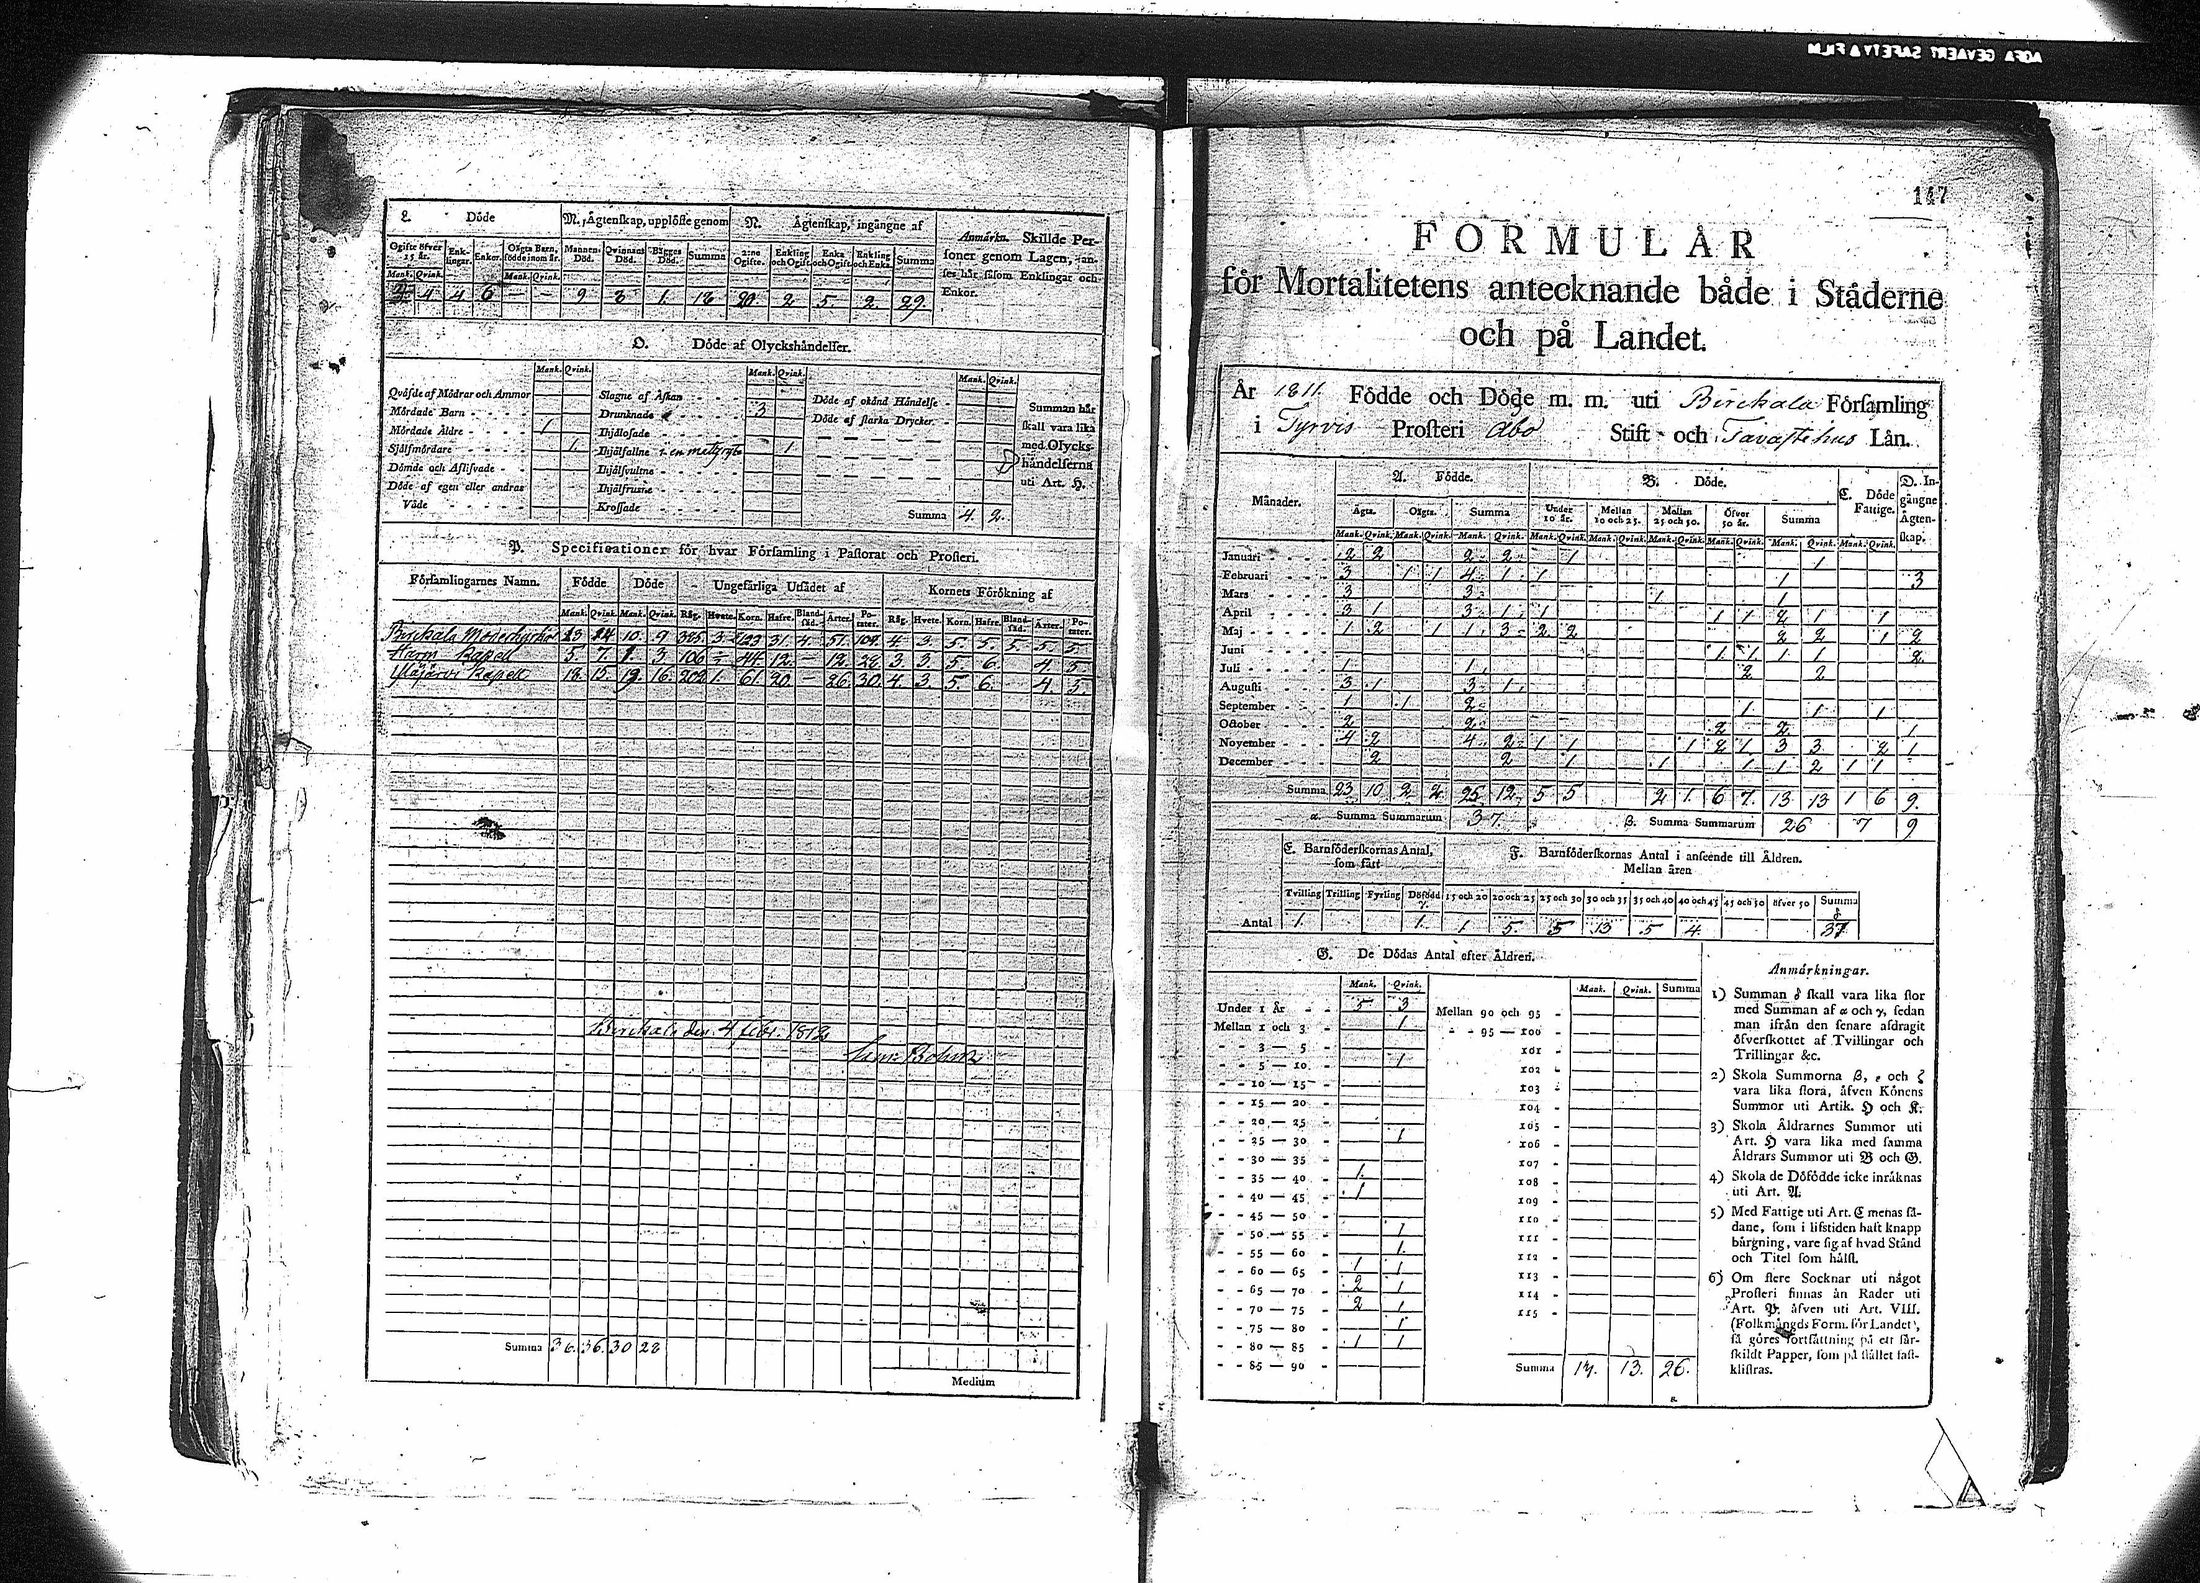 AGFA GEVAERT SAFETY FILM
L. Döde
M. Ägtenskap, upplöste genom
N. Ägtenskap, ingångne af
Anmärkn. Skillde Personer genom Lagen, anses här såsom Enklingar och Enkor.
Ogifte öfver 15 år. Enklingar. Enkor. Oägta Barn, födde inom år. Mannens Död. Qvinnans Död. Bägges Död. Summa 2:ne Ogifte. Enkling och Ogift. Enka och Ogift. Enkling och Enka. Summa
Mank. Qvink. Mank. Qvink.
4 4 6 — — 9 8 1. 18 20. 2. 5. 2. 29.
O. Döde af Olyckshändelser.
Mank. Qvink. Mank. Qvink. Mank. Qvink.
Qväfde af Mödrar och Ammor
Mördade Barn
Mördade Äldre 1
Självmördare 1.
Dömde och Aflifvade
Döde af egen eller andras Våde
Slagne af Åskan
Drunknade 3
Ihjälosade
Ihjälfallne 1
Ihjälsvultne
Ihjälfrusne
Krossade
Döde af okänd Händelse
Döde af starka Drycker.
Summa 4. 2.
Summan här skall vara lika med Olyckshändelserna uti Art. H.
P. Specificationer för hvar Församling i Pastorat och Prosteri.
Församlingarnes Namn. Födde Döde Ungefärliga Utsädet af Kornets Förökning af
Mank. Qvink. Mank. Qvink. Råg. Hvete. Korn. Hafre. Blandsäd. Ärter. Potater. Råg. Hvete. Korn. Hafre. Blandsäd. Ärter. Potater.
Birckala Moderkyrka 13 14 10. 9 325. 3 123 31. 4. 51. 109. 4. 3. 5. 5. 5. 5. 5.
Harju Kapell 5. 7 1. 3 106 — 44. 12. — 12. 28. 3. 3. 5. 6. 4 5
Ylöjärvi Kapell 18. 15. 19. 16. 202 1. 61. 20. — 26. 30. 4. 3. 5. 6. 4. 5.
Birckala den 4 febr. 1812
Summa 36. 36. 30 28
Medium
147
FORMULÄR
för Mortalitetens antecknande både i Städerne
och på Landet.
År 1811. Födde och Döde m. m. uti Birckala Församling
i Tyrvis Prosteri Åbo Stift och Tavastehus Län.
Månader. A. Födde. B. Döde. C. Döde Fattige. D. Ingångne Ägtenskap.
Ägta. Oägta. Summa Under 10 år. Mellan 10 och 25. Mellan 25 och 50. Öfver 50 år. Summa
Mank. Qvink. Mank. Qvink. Mank. Qvink. Mank. Qvink. Mank. Qvink. Mank. Qvink. Mank. Qvink. Mank. Qvink. Mank. Qvink.
Januari 2 2 2 2 1 1
Februari 3 1 1 4 1 1 1 3
Mars 3 3 1 1
April 3 1 3 1 1 1 1 2 1 1
Maj 1 2 1 1 3 2 2 2 2 1 2
Juni 1 1 1 1 2
Juli 1 1 2 2
Augusti 3 1 3 1
September 1 1 2 1 1 1
October 2 2 2 2 1
November 4 2 4 2 1 1 1 2 1 3 3 2 1
December 2 2 1 1 1 1 2 1 1
Summa 23 10 2 2 25 12 5 5 2 1. 6 7. 13 13 1 6 9.
α. Summa Summarum 37. β. Summa Summarum 26 7 9
E. Barnföderskornas Antal, som fått
F. Barnföderskornas Antal i anseende till Åldren.
Mellan åren
Tvilling Trilling Fyrling Dödfödd 15 och 20 20 och 25 25 och 30 30 och 35 35 och 40 40 och 45 45 och 50 öfver 50 Summa
Antal 1. 1. 1 5. 5 13 5 4. 37
G. De Dödas Antal efter Åldren.
Mank. Qvink. Mank. Qvink. Summa
Under 1 År 5 3
Mellan 1 och 3 1
3 — 5
5 — 10 1
10 — 15
15 — 20
20 — 25
25 — 30 1
30 — 35
35 — 40 1.
40 — 45 1
45 — 50
50 — 55 1
55 — 60 1.
60 — 65 1 1
65 — 70 2 1
70 — 75 2 1
75 — 80 1
80 — 85 1 1
85 — 90
Mellan 90 och 95
95 — 100
101
102
103
104
105
106
107
108
109
110
111
112
113
114
115
Summa 13. 13. 26.
Anmärkningar.
1) Summan δ skall vara lika stor
med Summan af α och γ, sedan
man ifrån den senare afdragit
öfverskottet af Tvillingar och
Trillingar &c.
2) Skola Summorna β, ε och ζ
vara lika stora, äfven Könens
Summor uti Artik. H och K.
3) Skola Åldrarnes Summor uti
Art. H vara lika med samma
Åldrars Summor uti B och G.
4) Skola de Dödfödde icke inräknas
uti Art. A.
5) Med Fattige uti Art. C menas sådane,
som i lifstiden haft knapp
bärgning, vare sig af hvad Stånd
och Titel som hälst.
6) Om flere Socknar uti något
Prosteri finnas än Rader uti
Art. P. äfven uti Art. VIII.
(Folkmängds Form. för Landet),
så göres fortsättning på ett särskildt
Papper, som på stället fastklistras.